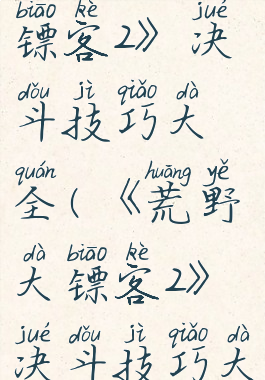 biāo kè jué
镖客2》 决
dǒu jì qiǎo dà
斗技巧大
quán huāng yě
全(《荒野
dà biāo kè
大镖客2》
jué dǒu jì qiǎo dà
决斗技巧大